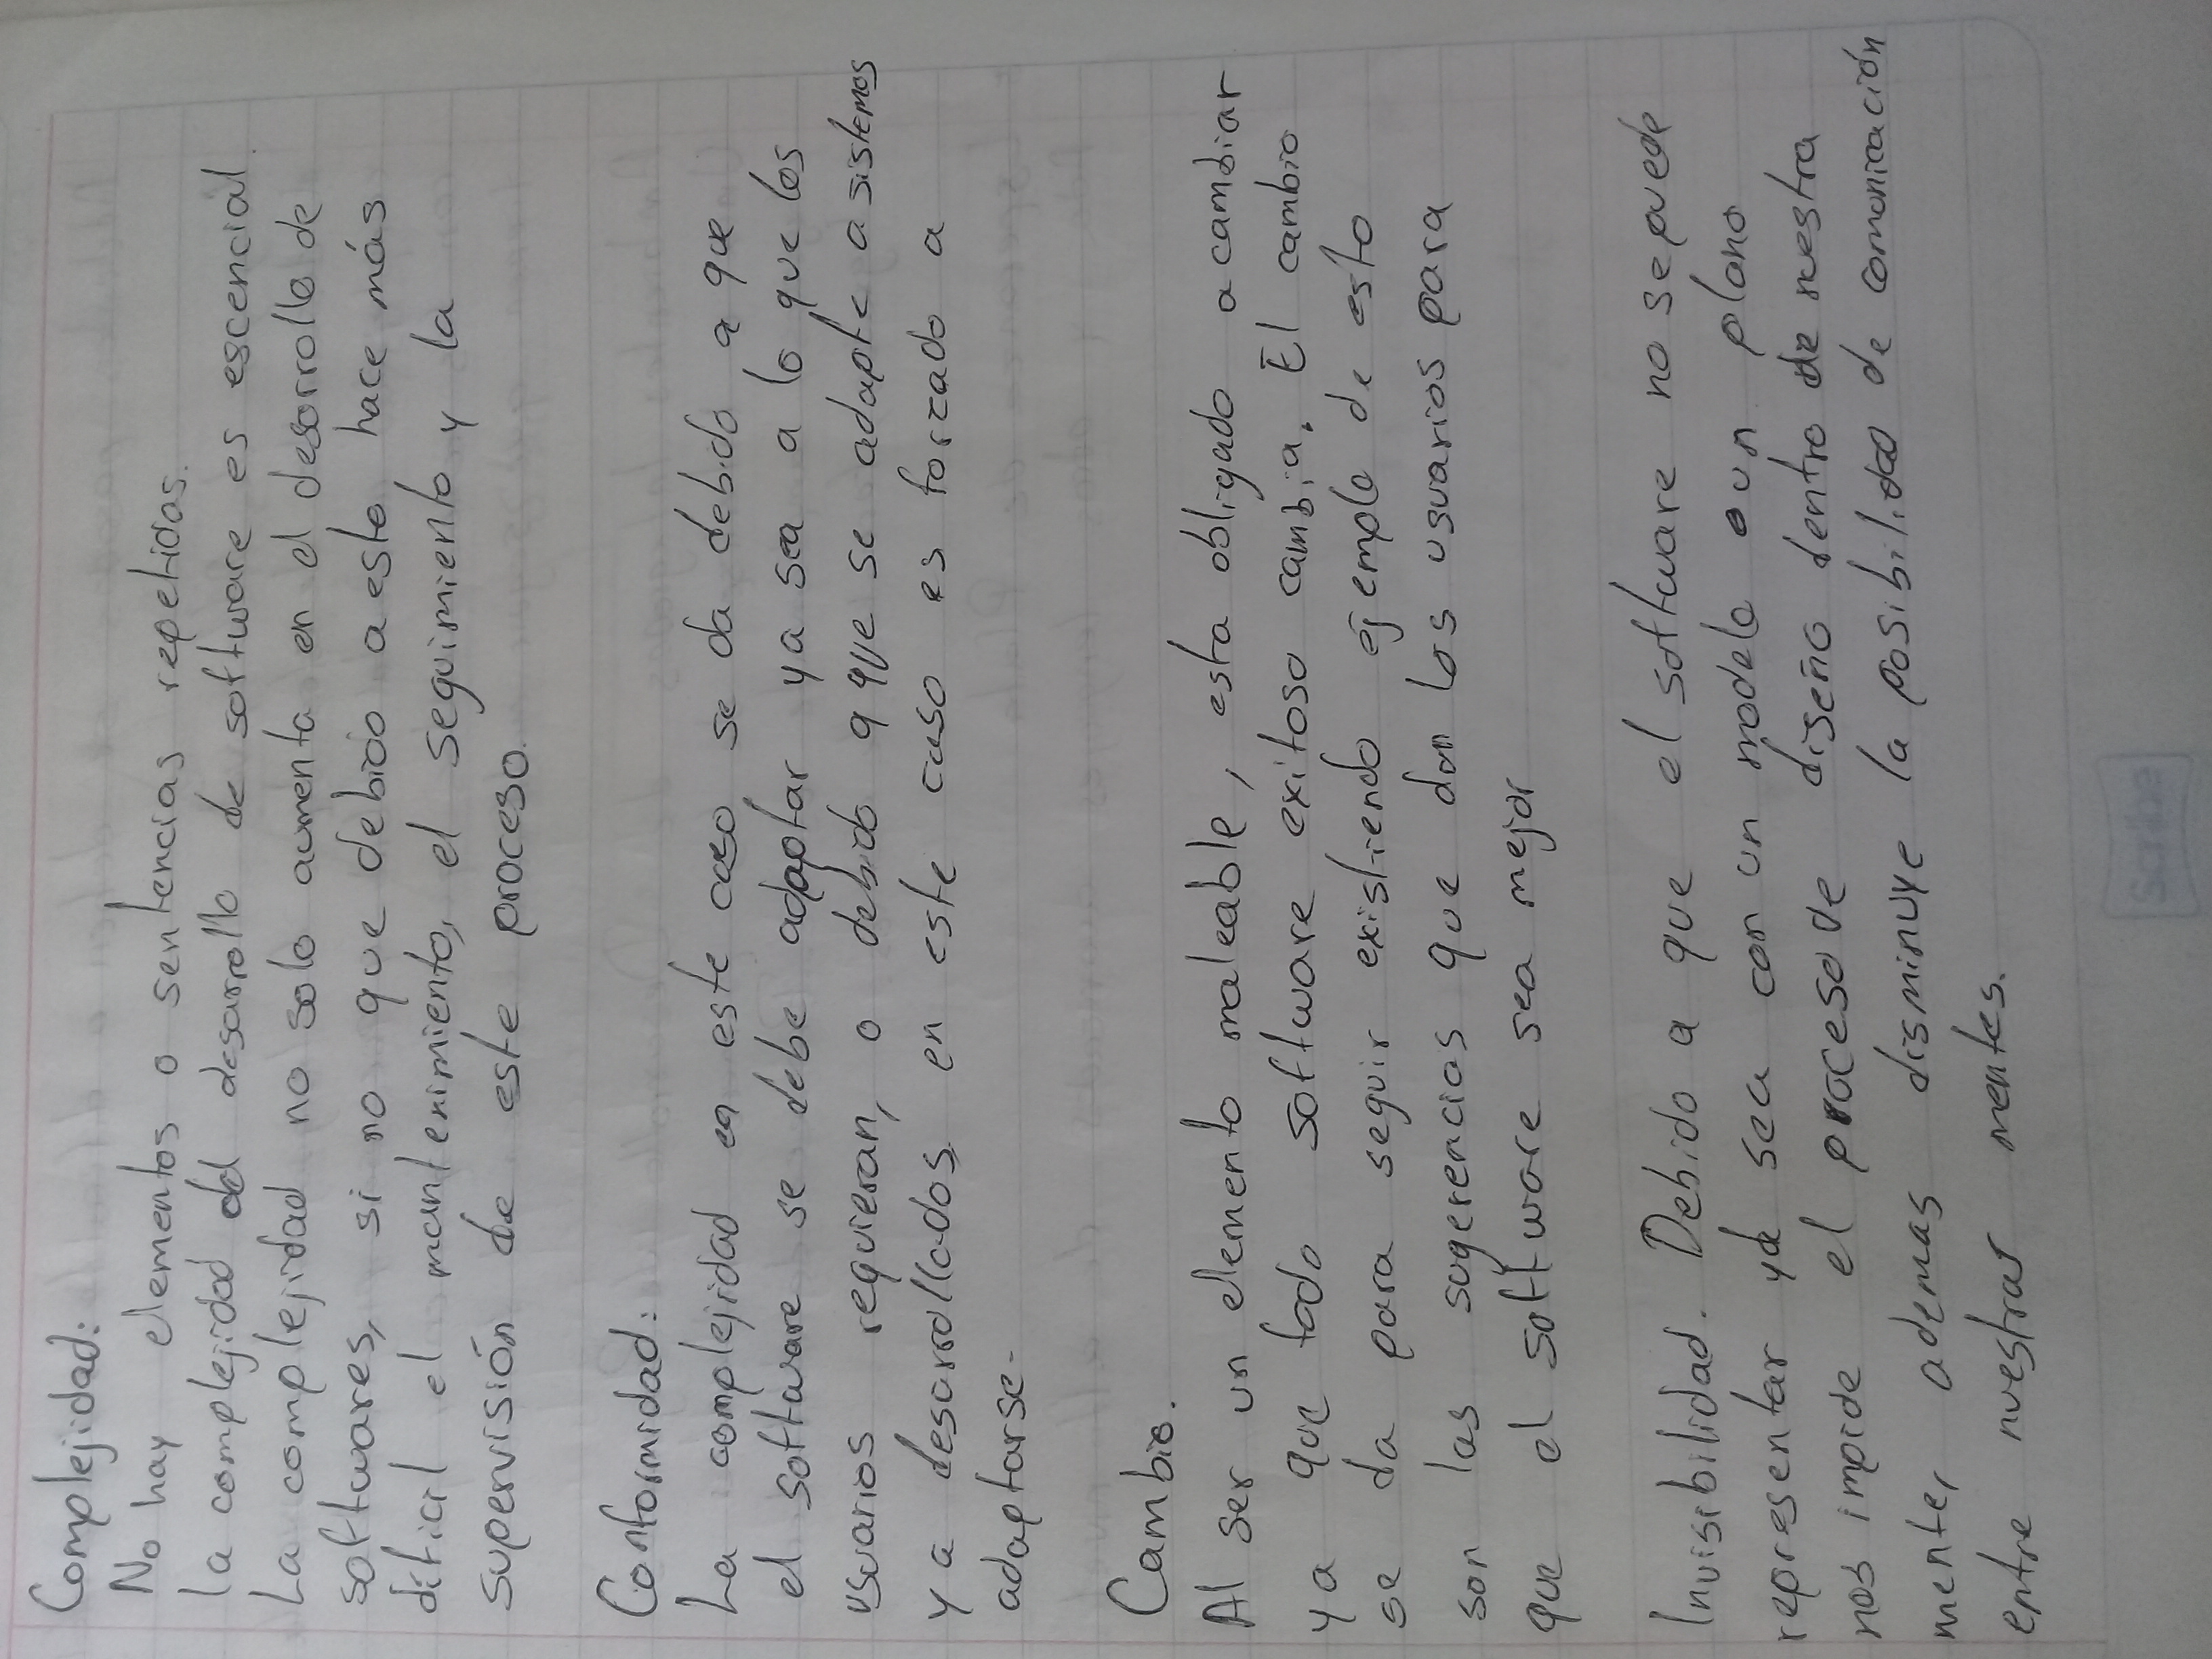 Complejidad:
No hay elementos o sentencias repetidas.
la complejidad del desarrollo de software es escencial.
La complejidad no solo aumenta en el desorrollo de
softwares, si no que debido a esto hace más
dificil el mantenimiento, el seguimiento y la
supervisión de este proceso.
Conformidad:
La complejidad en este caso se da debido a que
el software se debe adaptar ya sea a lo que los
usuarios requieran, o debido a que se adapte a sistemas
ya desorrollados, en este caso es forzado a
adaptarse.
Cambio.
Al ser un elemento maleable, esta obligado a cambiar
ya que todo software exitoso cambia. El cambio
se da para seguir existiendo ejemplo de esto
son las sugerencias que dan los usuarios para
que el software sea mejor
Invisibilidad. Debido a que el software no se puede
representar ya sea con un modelo o un plano
nos impide el proceso de diseño dentro de nuestra
mente, ademas disminuye la posibilidad de comonicación
entre nuestras mentes.
Scribe